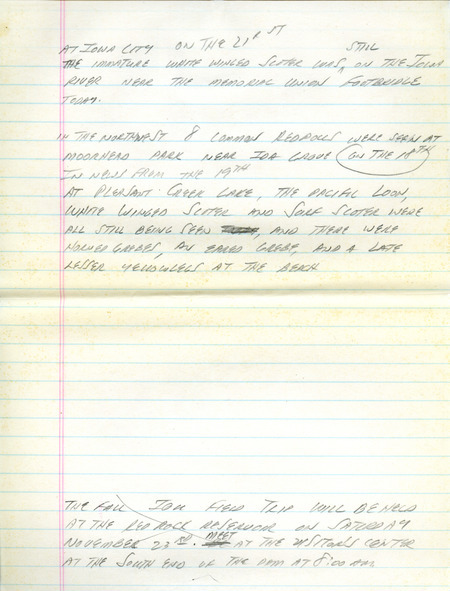 AT IOWA CITY ON THE 21ST STILL
THE IMMATURE WHITE WINGED SCOTER WAS ^ ON THE IOWA
RIVER NEAR THE MEMORIAL UNION FOOTBRIDGE
TODAY.
IN THE NORTHWEST 8 COMMON REDPOLLS WERE SEEN AT
MOORHEAD PARK NEAR IDA GROVE ON THE 18TH
IN NEWS FROM THE 19TH
AT PLEASANT CREEK LAKE, THE PACIFIC LOON,
WHITE WINGED SCOTER AND SURF SCOTER WERE
ALL STILL BEING SEEN, AND THERE WERE
HORNED GREBES, AN EARED GREBE, AND A LATE
LESSER YELLOWLEGS AT THE BEACH
THE FALL IOU FIELD TRIP WILL BE HELD
AT THE RED ROCK RESERVOIR ON SATURDAY
NOVEMBER 23RD. MEET AT THE VISITORS CENTER
AT THE SOUTH END OF THE DAM AT 8:00 AM.